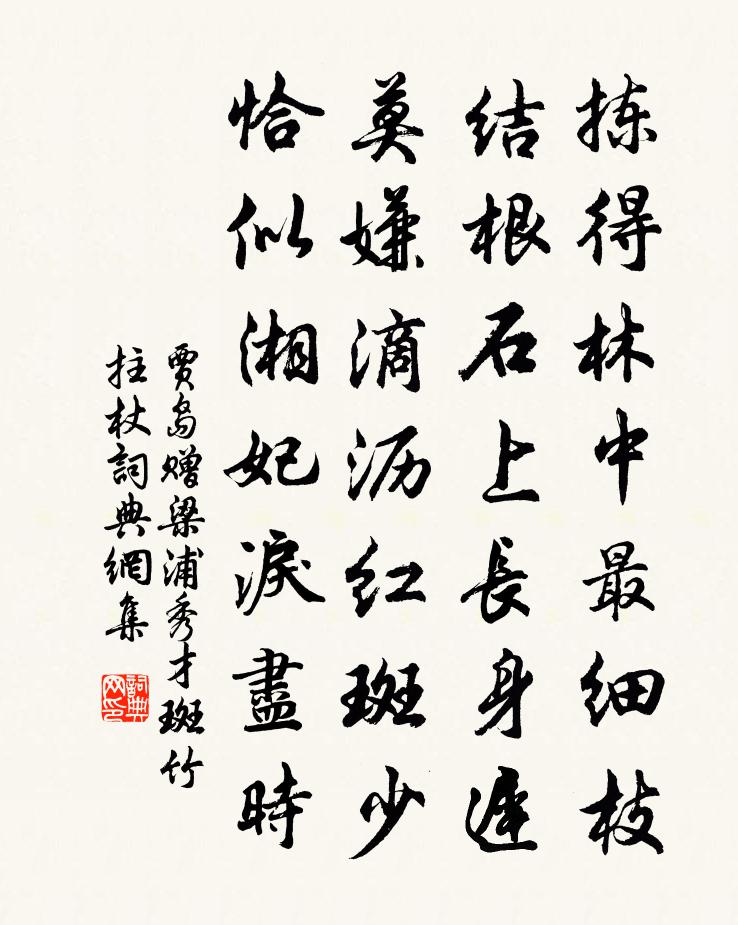 拣得林中最细枝
结根石上長身遲
莫嫌滴沥红斑少
恰似湘妃淚盡時
賈島赠梁浦秀才斑竹
拄杖詞典網集
詞典网印